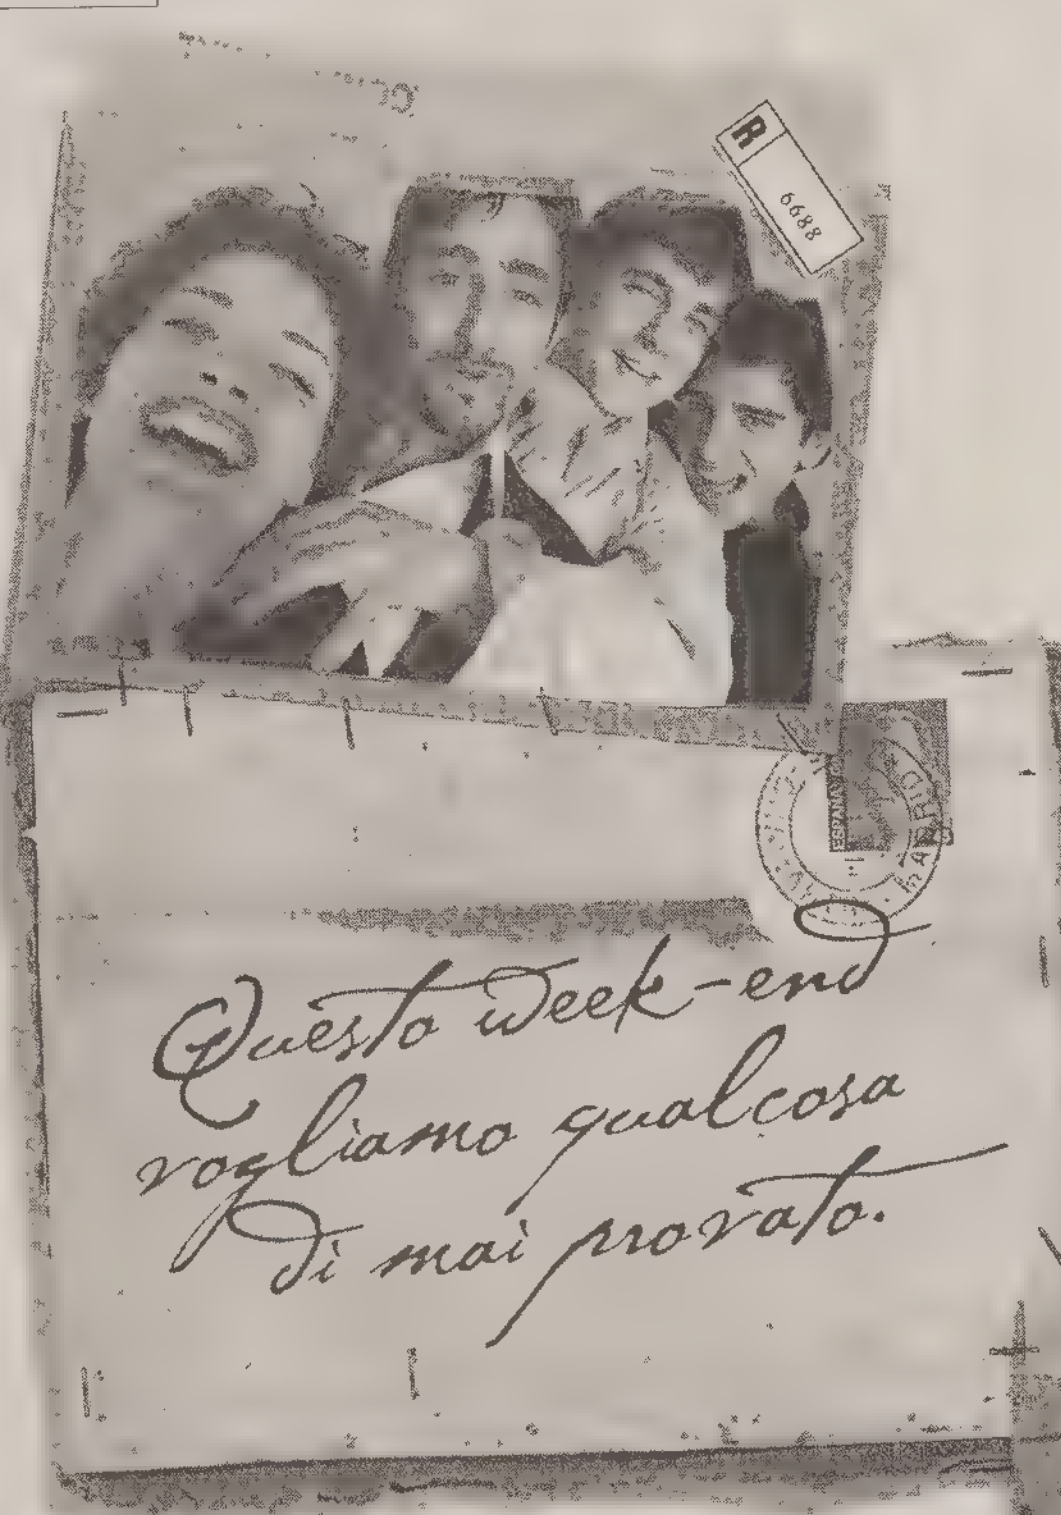 R
6688
ESPAÑA
MADRID
Questo week-end
vogliamo qualcosa
di mai provato.